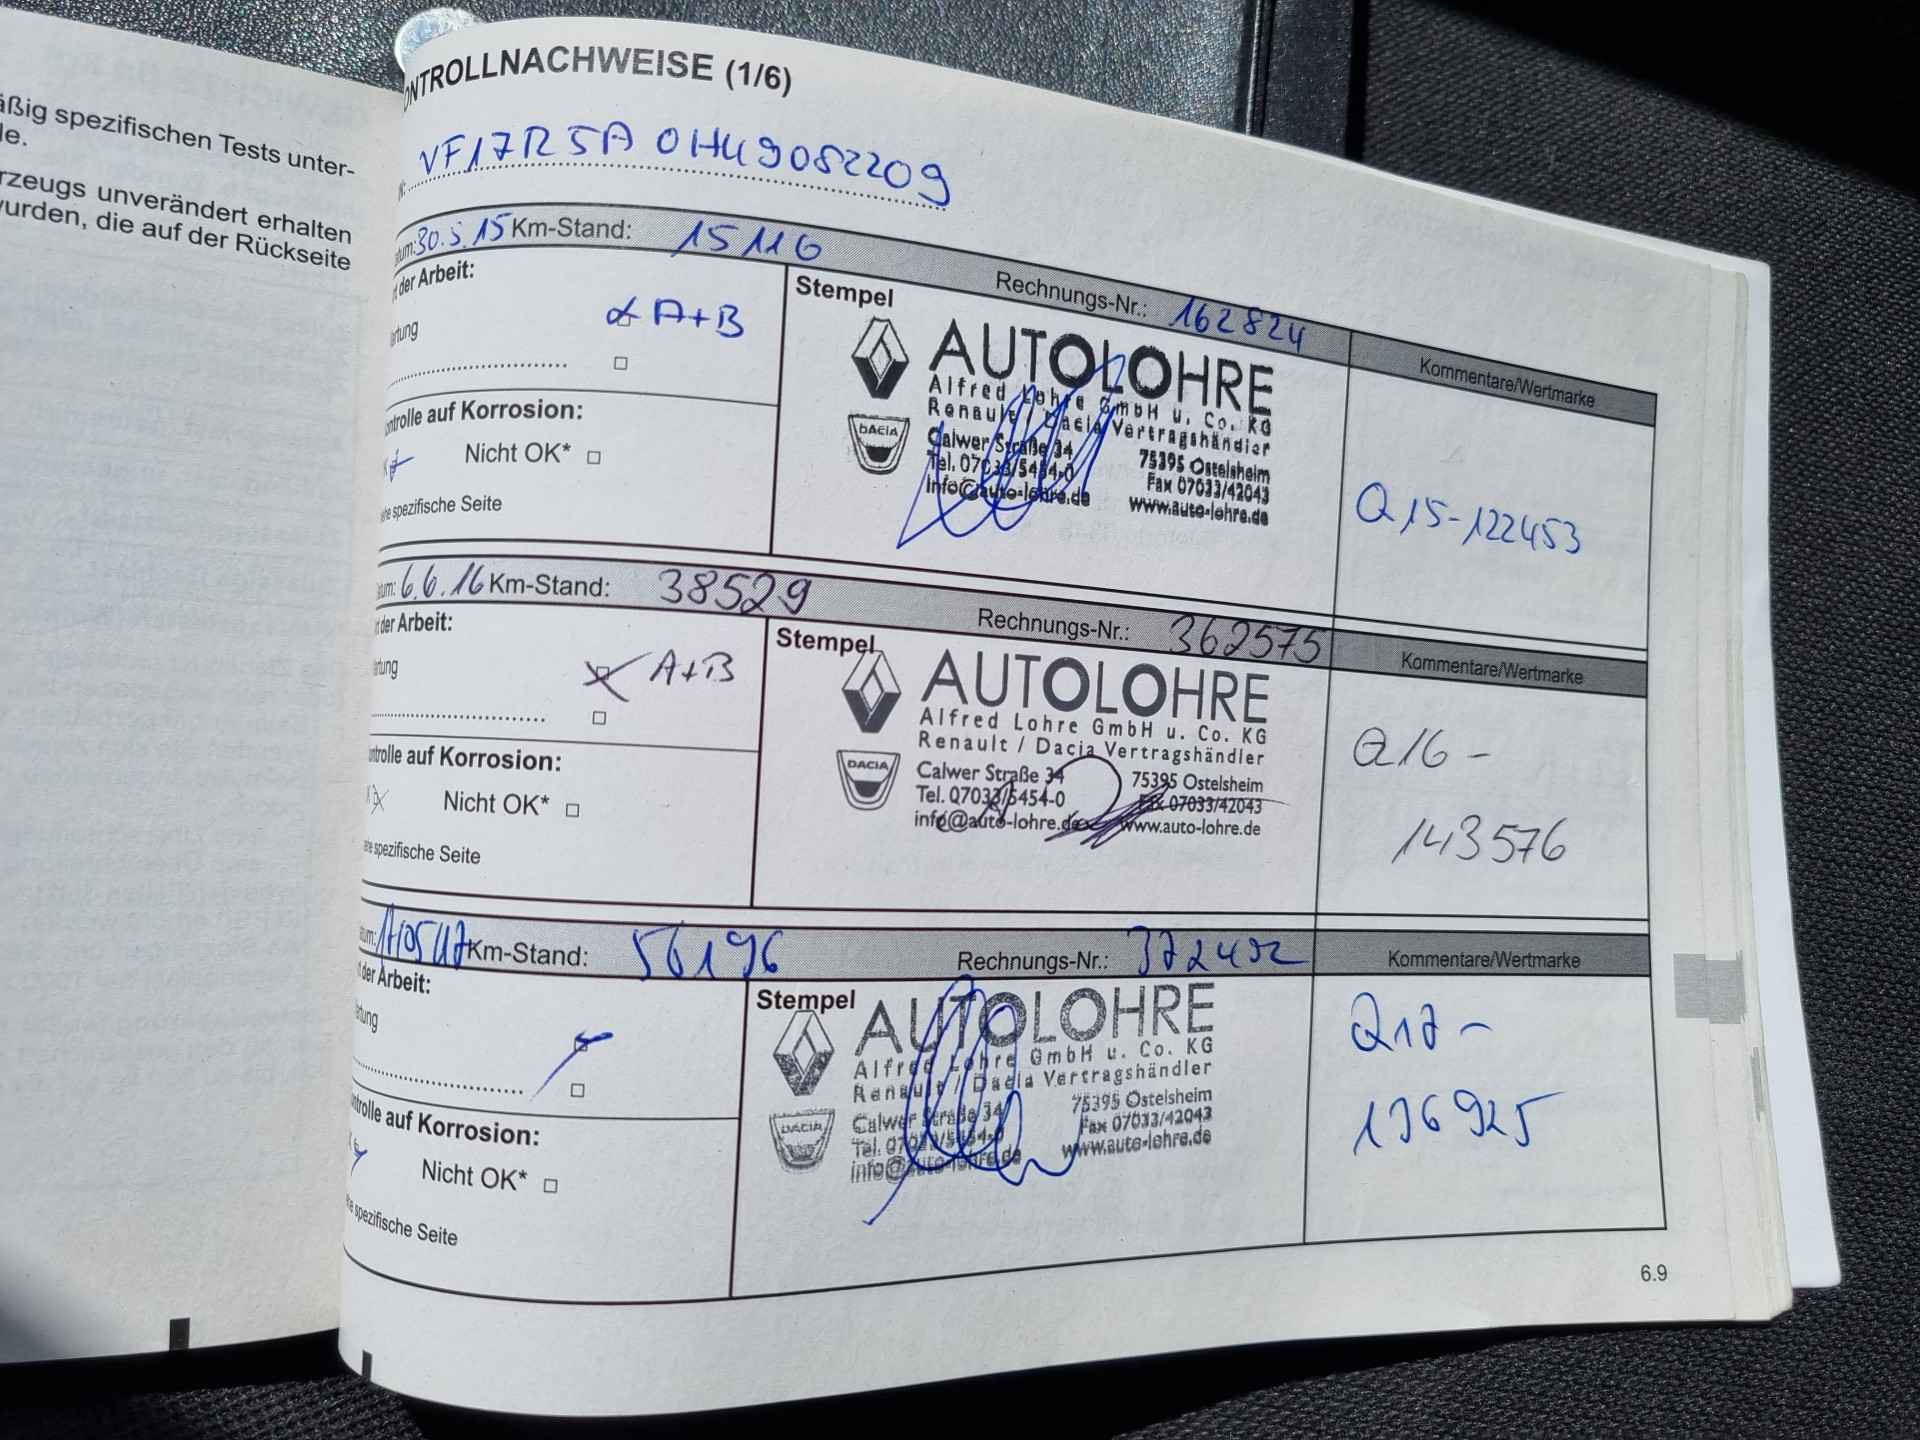 äßig spezifischen Tests unter-
de.
rzeugs unverändert erhalten
wurden, die auf der Rückseite
ONTROLLNACHWEISE (1/6)
N: VF17R5A0H49082209
atum: 30.5.15 Km-Stand: 15116 Rechnungs-Nr.: 162824 Kommentare/Wertmarke
t der Arbeit:
artung A+B
ontrolle auf Korrosion:
K Nicht OK*
ehe spezifische Seite
Stempel
AUTOLOHRE
Alfred Lohre GmbH u. Co. KG
Renault / Dacia Vertragshändler
DACIA
Calwer Straße 34 75395 Ostelsheim
Tel. 07033/5454-0 Fax 07033/42043
info@auto-lohre.de www.auto-lohre.de
Q15-122453
atum: 6.6.16 Km-Stand: 38529 Rechnungs-Nr.: 362575 Kommentare/Wertmarke
t der Arbeit:
artung A+B
ontrolle auf Korrosion:
K Nicht OK*
ehe spezifische Seite
Stempel
AUTOLOHRE
Alfred Lohre GmbH u. Co. KG
Renault / Dacia Vertragshändler
DACIA
Calwer Straße 34 75395 Ostelsheim
Tel. 07033/5454-0 Fax 07033/42043
info@auto-lohre.de www.auto-lohre.de
Q16-
143576
atum: Km-Stand: 56196 Rechnungs-Nr.: 372492 Kommentare/Wertmarke
t der Arbeit:
artung
ontrolle auf Korrosion:
K Nicht OK*
he spezifische Seite
Stempel
AUTOLOHRE
Alfred Lohre GmbH u. Co. KG
Renault / Dacia Vertragshändler
DACIA
Calwer Straße 34 75395 Ostelsheim
Tel. 07033/5454-0 Fax 07033/42043
info@auto-lohre.de www.auto-lohre.de
Q17-
136925
6.9